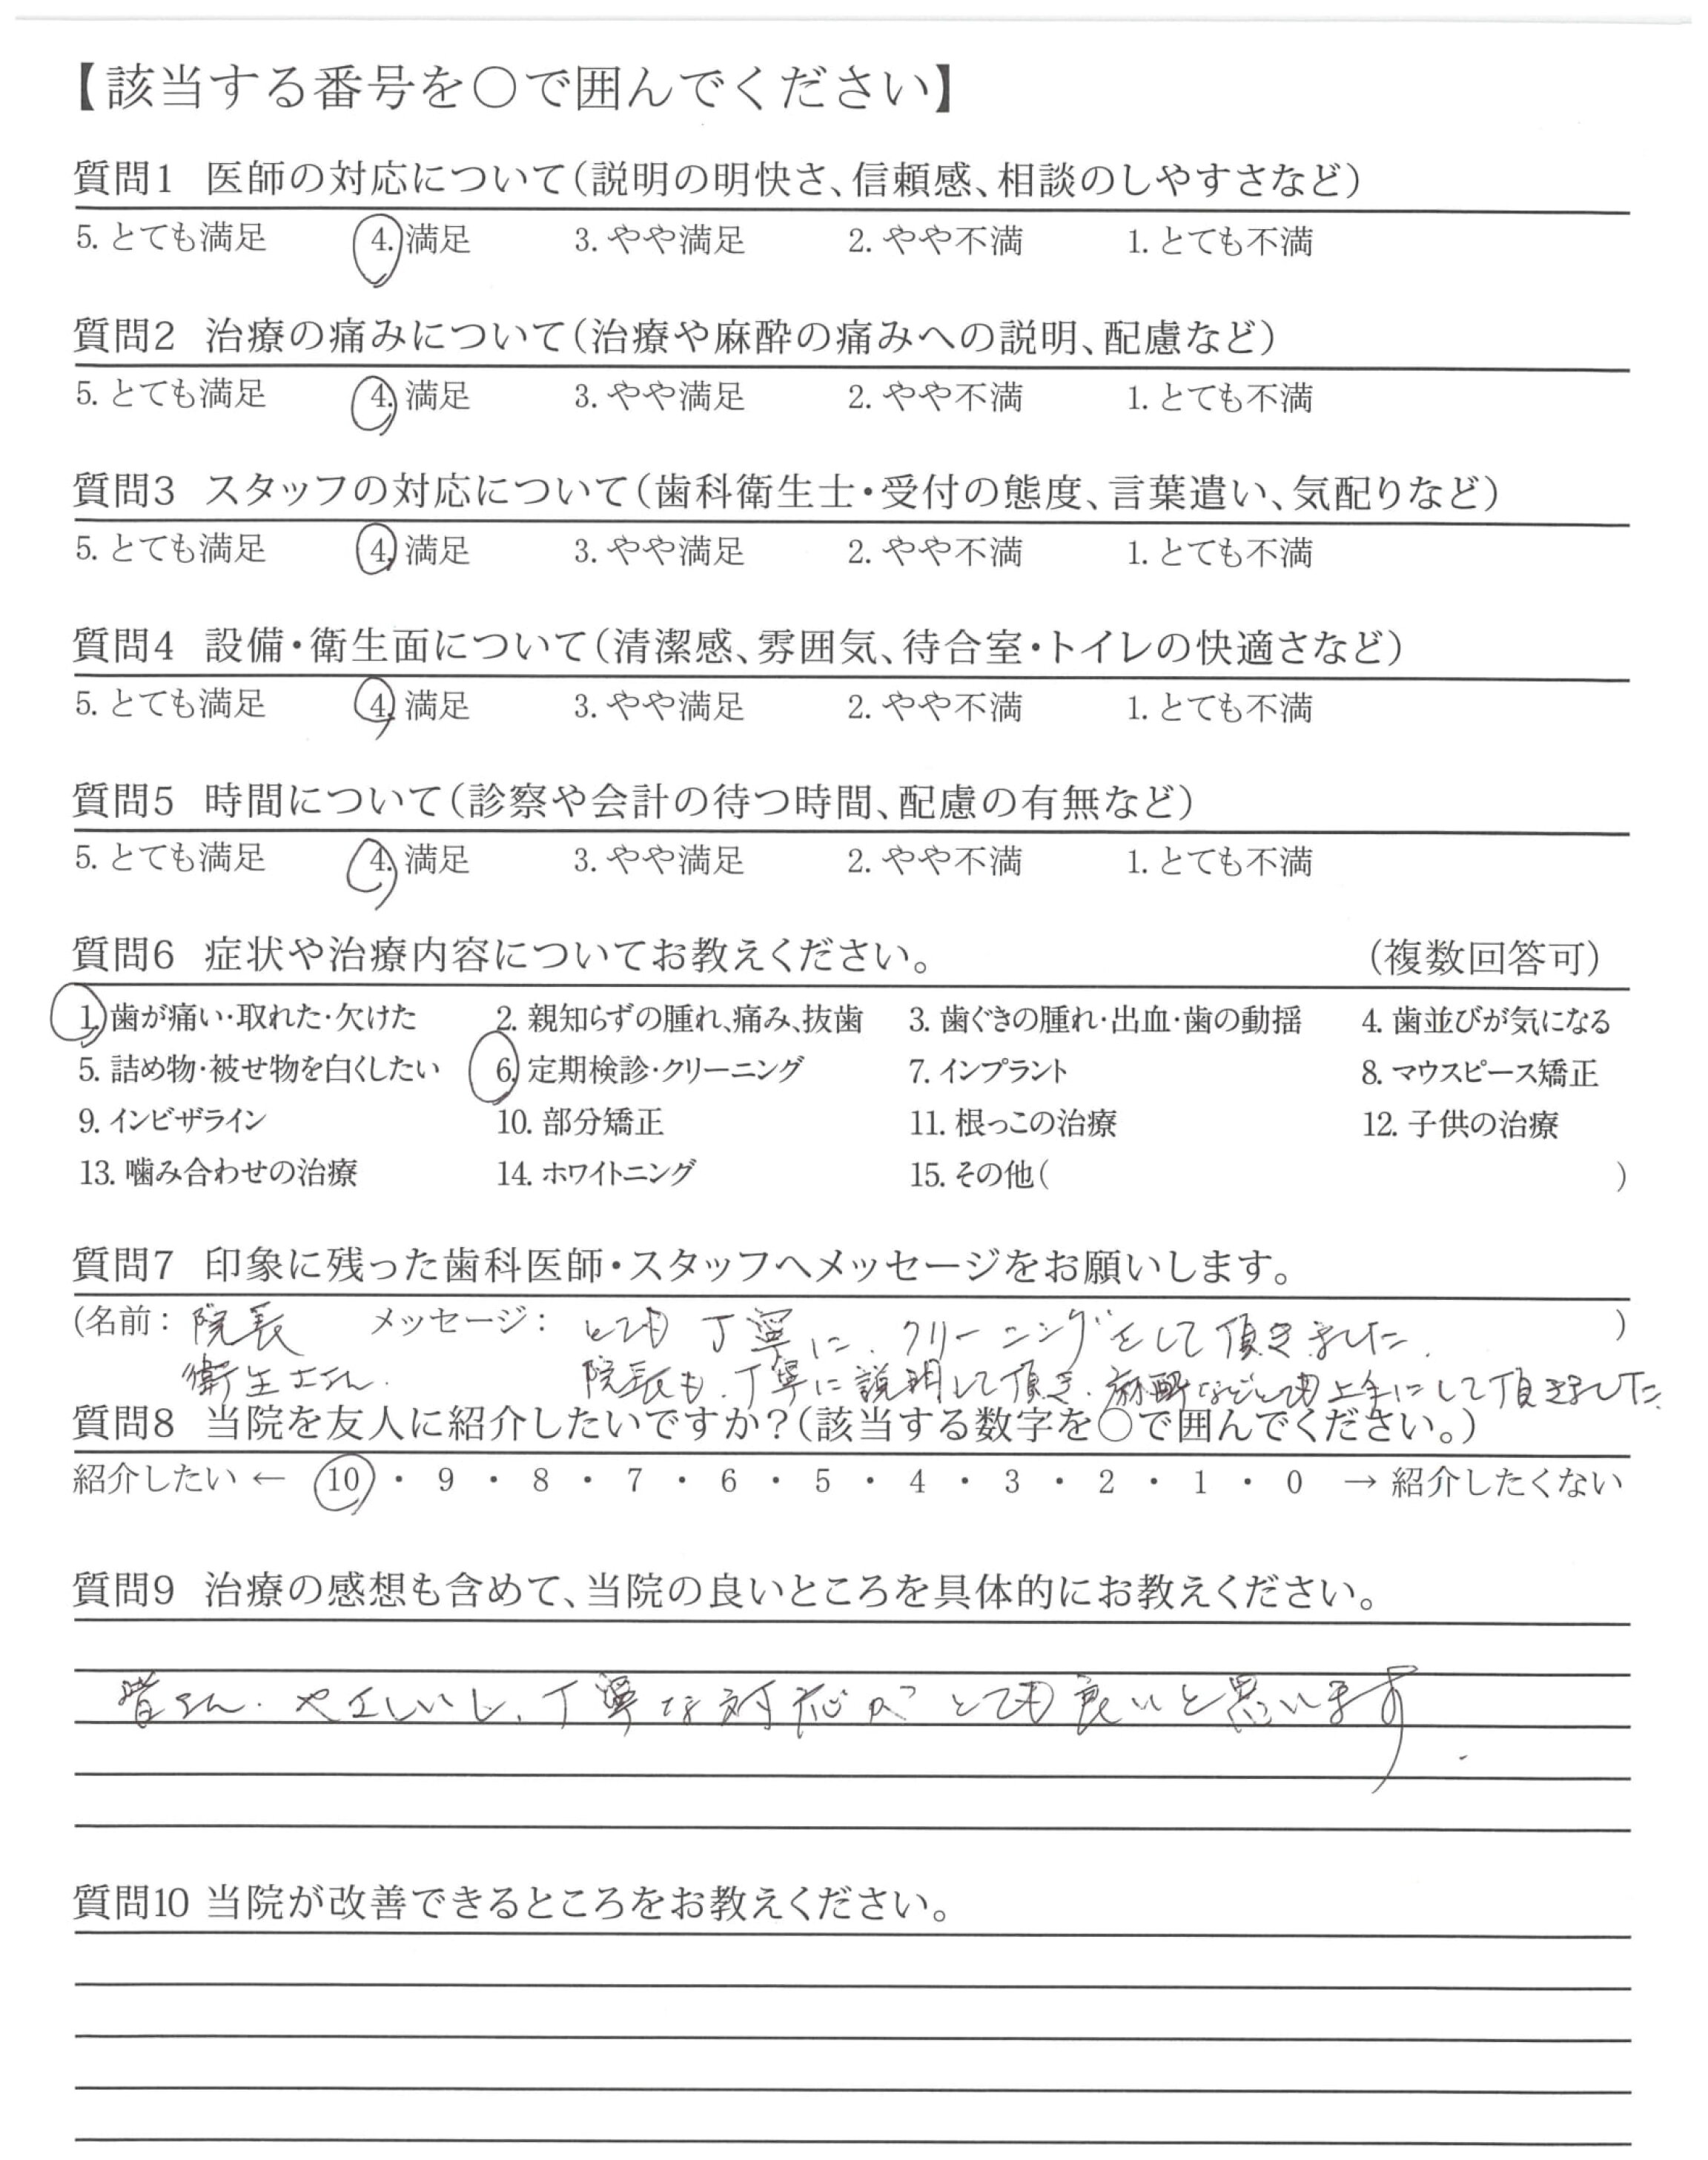 【該当する番号を○で囲んでください】
質問1 医師の対応について(説明の明快さ、信頼感、相談のしやすさなど)
5. とても満足 4. 満足 3. やや満足 2. やや不満 1. とても不満
質問2 治療の痛みについて(治療や麻酔の痛みへの説明、配慮など)
5. とても満足 4. 満足 3. やや満足 2. やや不満 1. とても不満
質問3 スタッフの対応について(歯科衛生士・受付の態度、言葉遣い、気配りなど)
5. とても満足 4. 満足 3. やや満足 2. やや不満 1. とても不満
質問4 設備・衛生面について(清潔感、雰囲気、待合室・トイレの快適さなど)
5. とても満足 4. 満足 3. やや満足 2. やや不満 1. とても不満
質問5 時間について(診察や会計の待つ時間、配慮の有無など)
5. とても満足 4. 満足 3. やや満足 2. やや不満 1. とても不満
質問6 症状や治療内容についてお教えください。 (複数回答可)
1. 歯が痛い・取れた・欠けた 2. 親知らずの腫れ、痛み、抜歯 3. 歯ぐきの腫れ・出血・歯の動揺 4. 歯並びが気になる
5. 詰め物・被せ物を白くしたい 6. 定期検診・クリーニング 7. インプラント 8. マウスピース矯正
9. インビザライン 10. 部分矯正 11. 根っこの治療 12. 子供の治療
13. 噛み合わせの治療 14. ホワイトニング 15. その他( )
質問7 印象に残った歯科医師・スタッフへメッセージをお願いします。
(名前: 院長 メッセージ: とても丁寧に、クリーニングをして頂きました。 )
衛生士さん. 院長も、丁寧に説明して頂き、麻酔などとても上手にして頂きました。
質問8 当院を友人に紹介したいですか?(該当する数字を○で囲んでください。)
紹介したい ← 10 ・ 9 ・ 8 ・ 7 ・ 6 ・ 5 ・ 4 ・ 3 ・ 2 ・ 1 ・ 0 → 紹介したくない
質問9 治療の感想も含めて、当院の良いところを具体的にお教えください。
皆さん、やさしいし、丁寧な対応がとても良いと思います.
質問10 当院が改善できるところをお教えください。